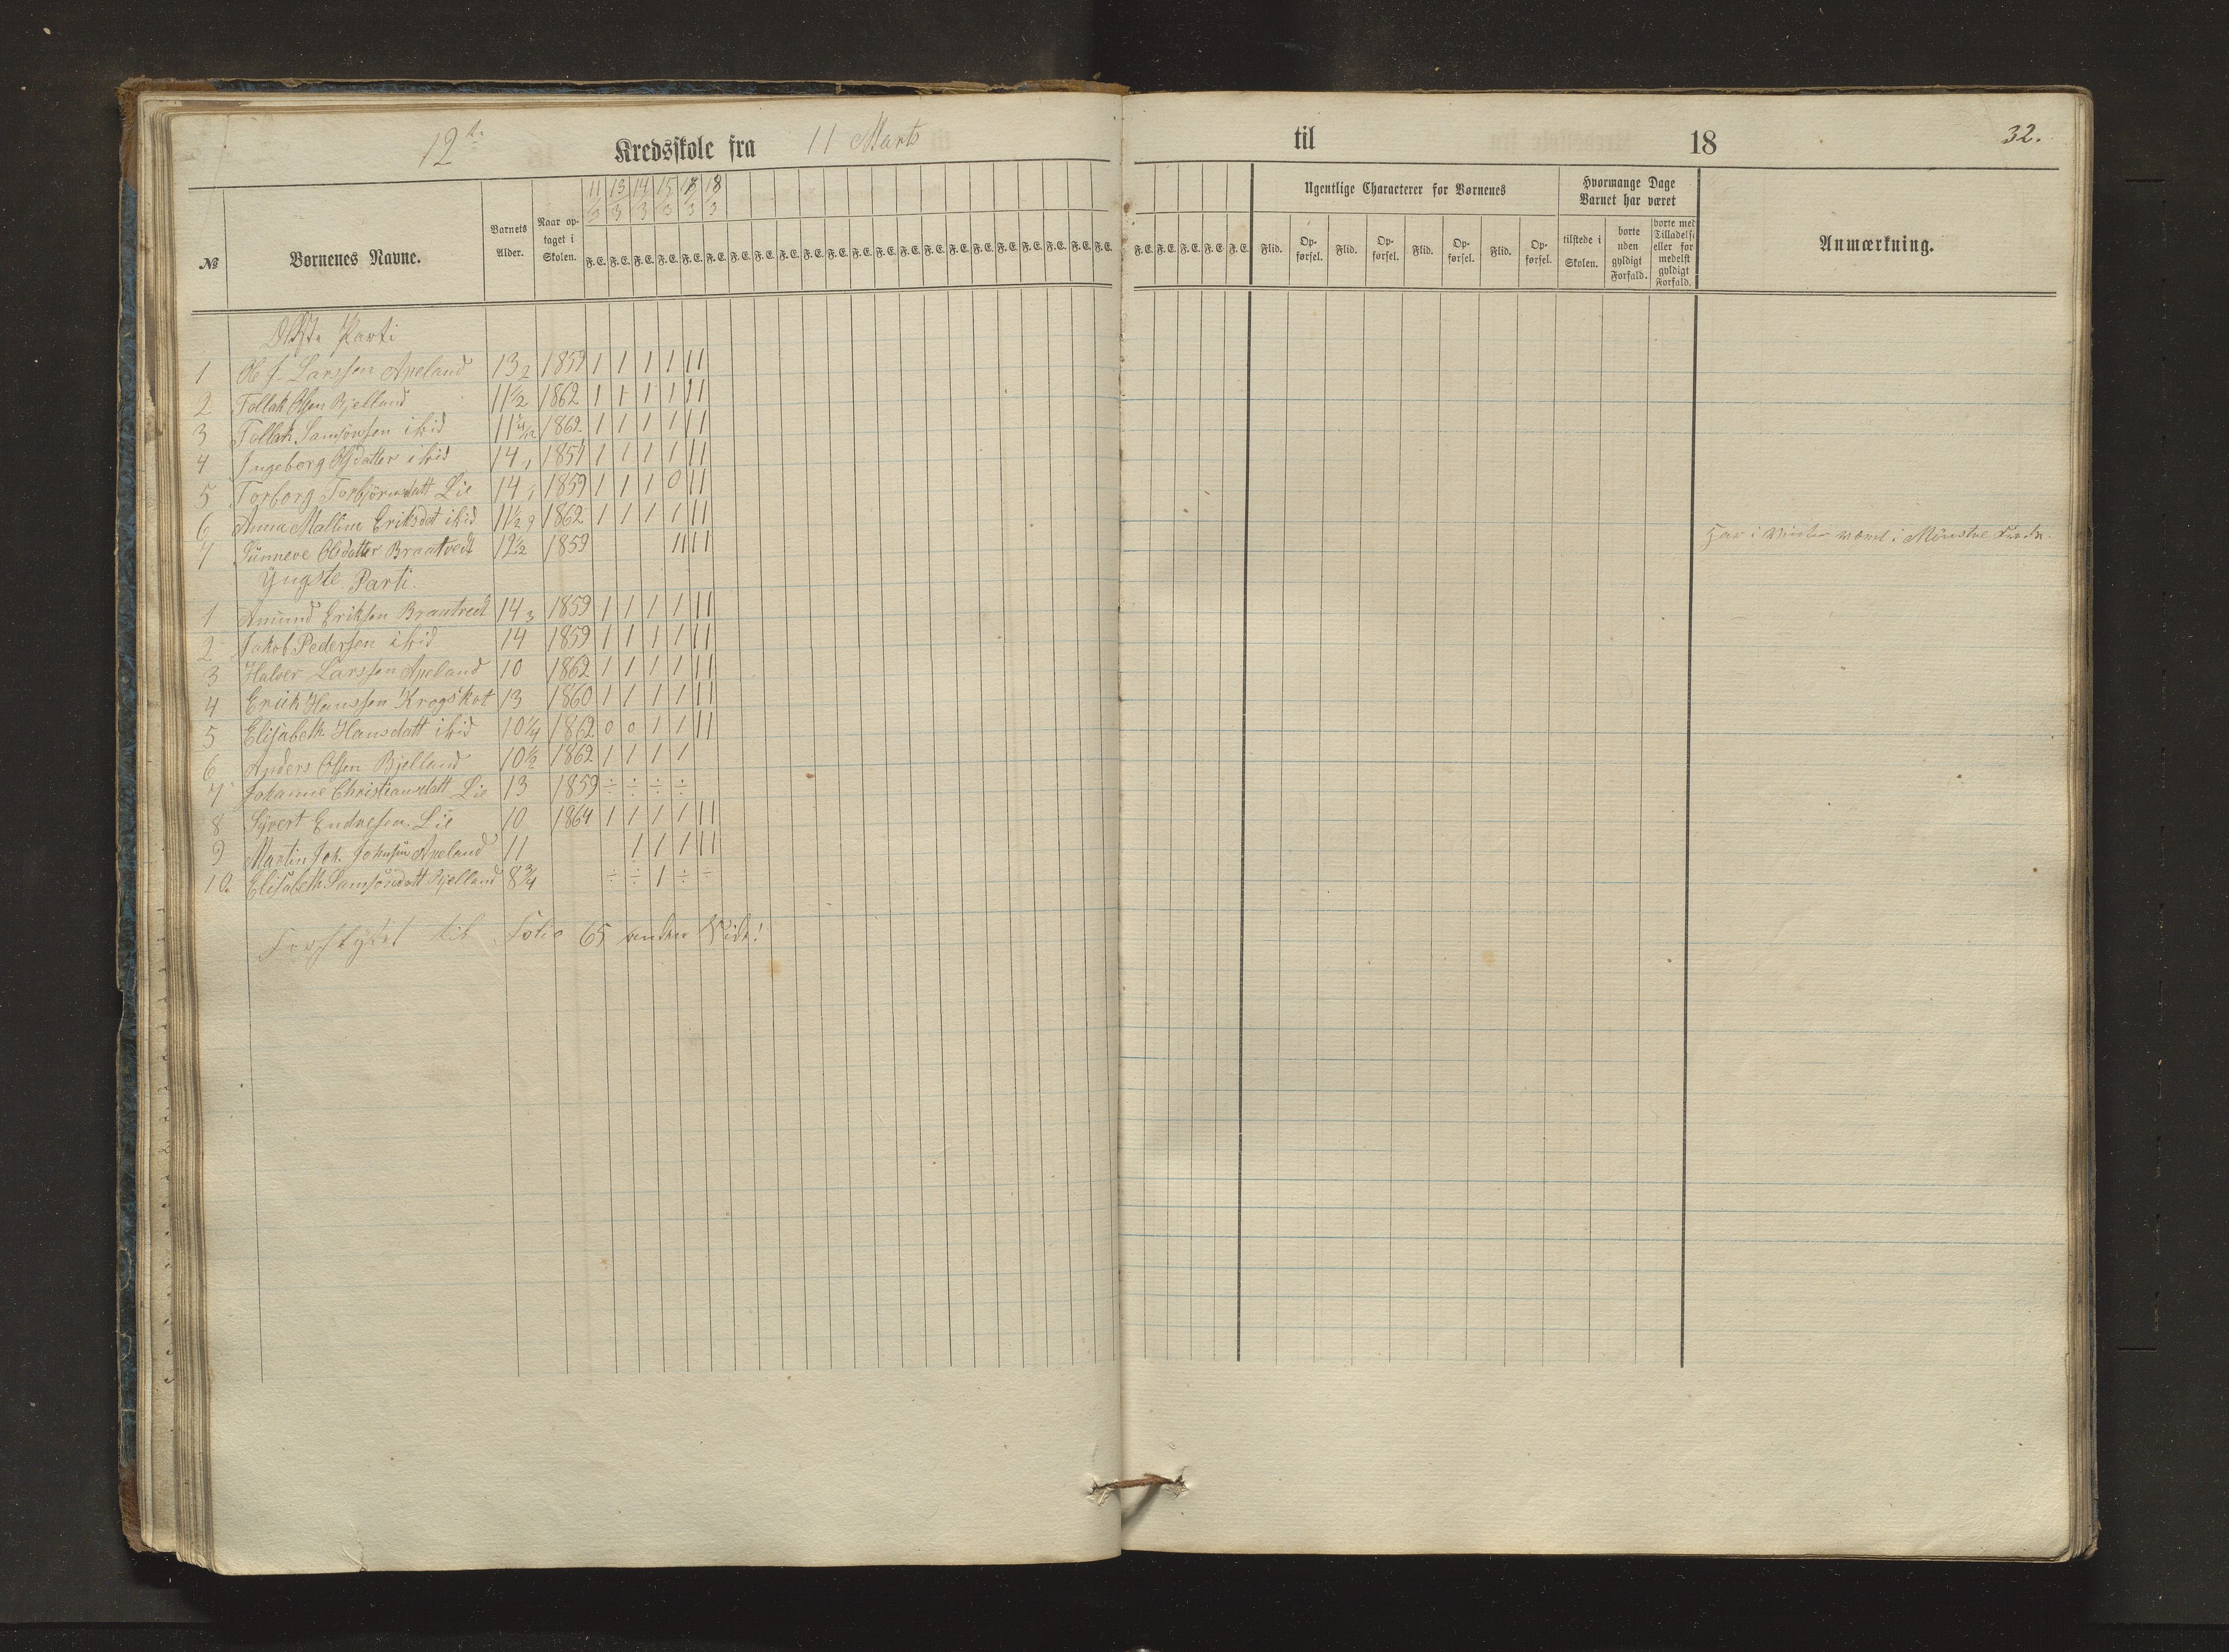 12te Kredsskole fra 11 Marts til 18 32.
№ Børnenes Navne. Barnets Alder. Naar optaget i Skolen. 11/3 13/3 14/3 15/3 18/3 Ugentlige Characterer for Børnenes Hvormange Dage Barnet har været Anmærkning.
F. E. F. E. F. E. F. E. F. E. F. E. F. E. F. E. F. E. F. E. F. E. F. E. F. E. F. E. F. E. F. E. F. E. F. E. F. E. F. E. F. E. F. E. F. E. F. E. F. E. F. E. F. E. Flid. Opførsel. Flid. Opførsel. Flid. Opførsel. Flid. Opførsel. tilstede i Skolen. borte uden gyldigt Forfald. borte med Tilladelse eller formedelst gyldigt Forfald.
Ældste Parti
1 Ole J. Larssen Apeland 13 2 1859 1 1 1 1 1 1
2 Tollak Olsen Bjelland 11 1/2 1862 1 1 1 1 1 1
3 Tollak Samsonsen ibid 11 4/12 1862 1 1 1 1 1 1
4 Ingeborg Olsdatter ibid 14 1 1 1 1 1 1 1
5 Torborg Torbjörnsdatt Lie 14 1 1859 1 1 1 0 1 1
6 Anna Malline Eriksdat ibid 11 1/2 1862 1 1 1 1 1 1
7 Sünneve Olsdatter Braatvedt 12 1/2 1859 1 1 1 1 Har i Vinter været i Kreds.
Yngste Parti.
1 Amund Eriksen Braatvedt 14 3 1859 1 1 1 1 1 1
2 Jakob Pedersen ibid 14 1859 1 1 1 1 1 1
3 Halvor Larssen Apeland 10 1862 1 1 1 1 1 1
4 Erick Hanssen Krogskot 13 1860 1 1 1 1 1 1
5 Elisabeth Hansdatt ibid 10 1/4 1862 0 0 1 1 1 1
6 Anders Olsen Bjelland 10 1/2 1862 1 1 1 1
7 Johanne Christiansdatt Lie 13 1859 ÷ ÷ ÷ ÷
8 Sjvert Endresen Lie 10 1864 1 1 1 1 1 1
9 Martin Joh. Johnsen Apeland 11 1 1 1 1 1
10. Elisabeth Samsonsdatt Bjelland 8 3/4 ÷ ÷ 1 ÷ ÷
Forflyttet til Folio 65 anden Side!